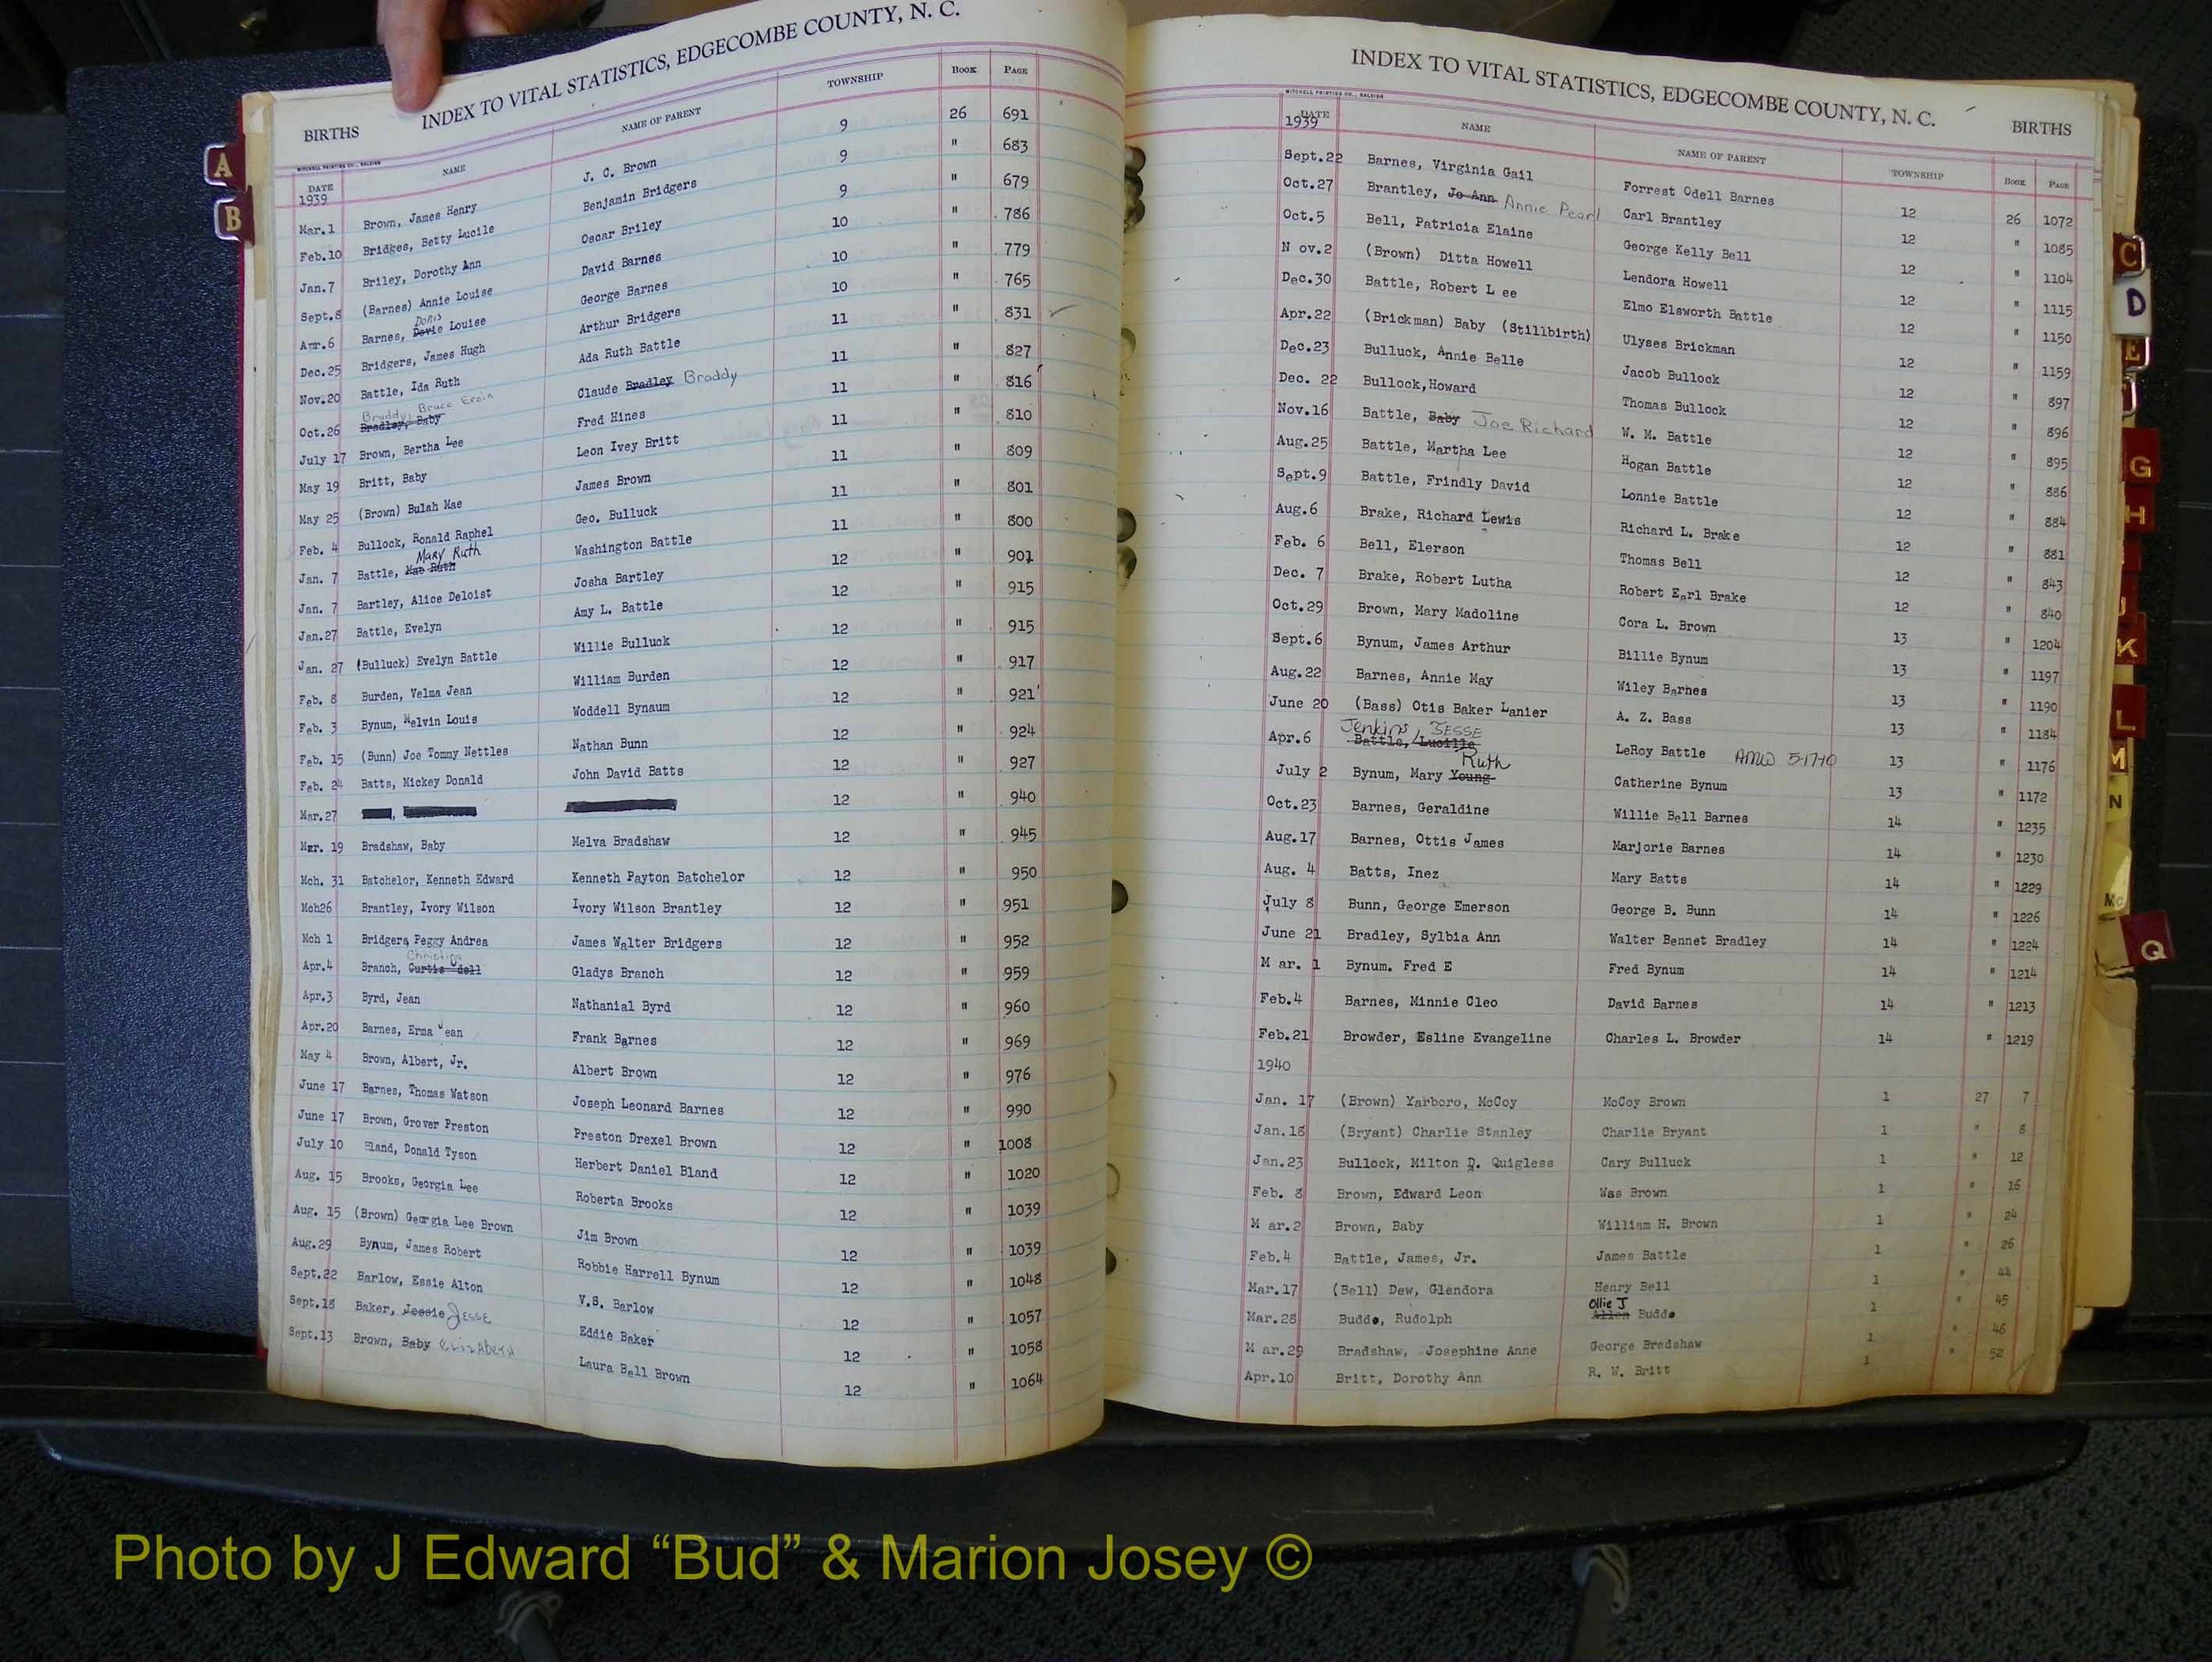 INDEX TO VITAL STATISTICS, EDGECOMBE COUNTY, N. C.
BIRTHS
MITCHELL PRINTING CO., RALEIGH
DATE NAME NAME OF PARENT TOWNSHIP BOOK PAGE
1939
Mar.1 Brown, James Henry J. C. Brown 9 26 691
Feb.10 Bridges, Betty Lucile Benjamin Bridgers 9 " 683
Jan.7 Briley, Dorothy Ann Oscar Briley 9 " 679
Sept.8 (Barnes) Annie Louise David Barnes 10 " 786
Doris
Apr.6 Barnes, Dovie Louise George Barnes 10 " 779
Dec.25 Bridgers, James Hugh Arthur Bridgers 10 " 765
Nov.20 Battle, Ida Ruth Ada Ruth Battle 11 " 831
Braddy, Bruce Ervin
Oct.26 Bradley, Baby Claude Bradley Braddy 11 " 827
July 17 Brown, Bertha Lee Fred Hines 11 " 816
May 19 Britt, Baby Leon Ivey Britt 11 " 810
May 25 (Brown) Bulah Mae James Brown 11 " 809
Feb. 4 Bullock, Ronald Raphel Geo. Bulluck 11 " 801
Mary Ruth
Jan. 7 Battle, Mae Ruth Washington Battle 11 " 800
Jan. 7 Bartley, Alice Deloist Josha Bartley 12 " 901
Jan.27 Battle, Evelyn Amy L. Battle 12 " 915
Jan. 27 (Bulluck) Evelyn Battle Willie Bulluck 12 " 915
Feb. 8 Burden, Velma Jean William Burden 12 " 917
Feb. 3 Bynum, Melvin Louis Woddell Bynaum 12 " 921
Feb. 15 (Bunn) Joe Tommy Nettles Nathan Bunn 12 " 924
Feb. 24 Batts, Mickey Donald John David Batts 12 " 927
Mar.27 , 12 " 940
Mar. 19 Bradshaw, Baby Melva Bradshaw 12 " 945
Mch. 31 Batchelor, Kenneth Edward Kenneth Payton Batchelor 12 " 950
Mch26 Brantley, Ivory Wilson Ivory Wilson Brantley 12 " 951
Mch 1 Bridgers Peggy Andrea James Walter Bridgers 12 " 952
Christine
Apr.4 Branch, Curtis Odell Gladys Branch 12 " 959
Apr.3 Byrd, Jean Nathanial Byrd 12 " 960
Apr.20 Barnes, Erma Jean Frank Barnes 12 " 969
May 4 Brown, Albert, Jr. Albert Brown 12 " 976
June 17 Barnes, Thomas Watson Joseph Leonard Barnes 12 " 990
June 17 Brown, Grover Preston Preston Drexel Brown 12 " 1008
July 10 Bland, Donald Tyson Herbert Daniel Bland 12 " 1020
Aug. 15 Brooks, Georgia Lee Roberta Brooks 12 " 1039
Aug. 15 (Brown) Georgia Lee Brown Jim Brown 12 " 1039
Aug.29 Bynum, James Robert Robbie Harrell Bynum 12 " 1048
Sept.22 Barlow, Essie Alton V.S. Barlow 12 " 1057
Sept.18 Baker, Jessie Jesse Eddie Baker 12 " 1058
Sept.13 Brown, Baby Elizabeth Laura Bell Brown 12 " 1064
A
B
INDEX TO VITAL STATISTICS, EDGECOMBE COUNTY, N. C.
BIRTHS
MITCHELL PRINTING CO., RALEIGH
DATE NAME NAME OF PARENT TOWNSHIP BOOK PAGE
1939
Sept.22 Barnes, Virginia Gail Forrest Odell Barnes 12 26 1072
Oct.27 Brantley, Jo Ann Annie Pearl Carl Brantley 12 " 1085
Oct.5 Bell, Patricia Elaine George Kelly Bell 12 " 1104
N ov.2 (Brown) Ditta Howell Lendora Howell 12 " 1115
Dec.30 Battle, Robert L ee Elmo Elsworth Battle 12 " 1150
Apr.22 (Brickman) Baby (Stillbirth) Ulyses Brickman 12 " 1159
Dec.23 Bulluck, Annie Belle Jacob Bullock 12 " 897
Dec. 22 Bullock,Howard Thomas Bullock 12 " 896
Nov.16 Battle, Baby Joe Richard W. M. Battle 12 " 895
Aug.25 Battle, Martha Lee Hogan Battle 12 " 886
Sept.9 Battle, Frindly David Lonnie Battle 12 " 884
Aug.6 Brake, Richard Lewis Richard L. Brake 12 " 881
Feb. 6 Bell, Elerson Thomas Bell 12 " 843
Dec. 7 Brake, Robert Lutha Robert Earl Brake 12 " 840
Oct.29 Brown, Mary Madoline Cora L. Brown 13 " 1204
Sept.6 Bynum, James Arthur Billie Bynum 13 " 1197
Aug.22 Barnes, Annie May Wiley Barnes 13 " 1190
June 20 (Bass) Otis Baker Lanier A. Z. Bass 13 " 1184
Jenkins JESSE
Apr.6 Battle, Lucille LeRoy Battle AMW 5-17-10 13 " 1176
Ruth
July 2 Bynum, Mary Young Catherine Bynum 13 " 1172
Oct.23 Barnes, Geraldine Willie Bell Barnes 14 " 1235
Aug.17 Barnes, Ottis James Marjorie Barnes 14 " 1230
Aug. 4 Batts, Inez Mary Batts 14 " 1229
July 8 Bunn, George Emerson George B. Bunn 14 " 1226
June 21 Bradley, Sylbia Ann Walter Bennet Bradley 14 " 1224
M ar. 1 Bynum. Fred E Fred Bynum 14 " 1214
Feb.4 Barnes, Minnie Cleo David Barnes 14 " 1213
Feb.21 Browder, Esline Evangeline Charles L. Browder 14 " 1219
1940
Jan. 17 (Brown) Yarboro, McCoy McCoy Brown 1 27 7
Jan.18 (Bryant) Charlie Stanley Charlie Bryant 1 " 8
Jan.23 Bullock, Milton D. Quigless Cary Bulluck 1 " 12
Feb. 8 Brown, Edward Leon Was Brown 1 " 16
M ar.2 Brown, Baby William H. Brown 1 " 24
Feb.4 Battle, James, Jr. James Battle 1 " 26
Mar.17 (Bell) Dew, Glendora Henry Bell 1 " 44
Ollie J
Mar.28 Budde, Rudolph Allen Budde 1 " 45
M ar.29 Bradshaw, Josephine Anne George Bradshaw 1 " 46
Apr.10 Britt, Dorothy Ann R. W. Britt 1 " 52
C
D
E
G
H
J
K
L
M
N
Mc
Q
Photo by J Edward “Bud” & Marion Josey ©